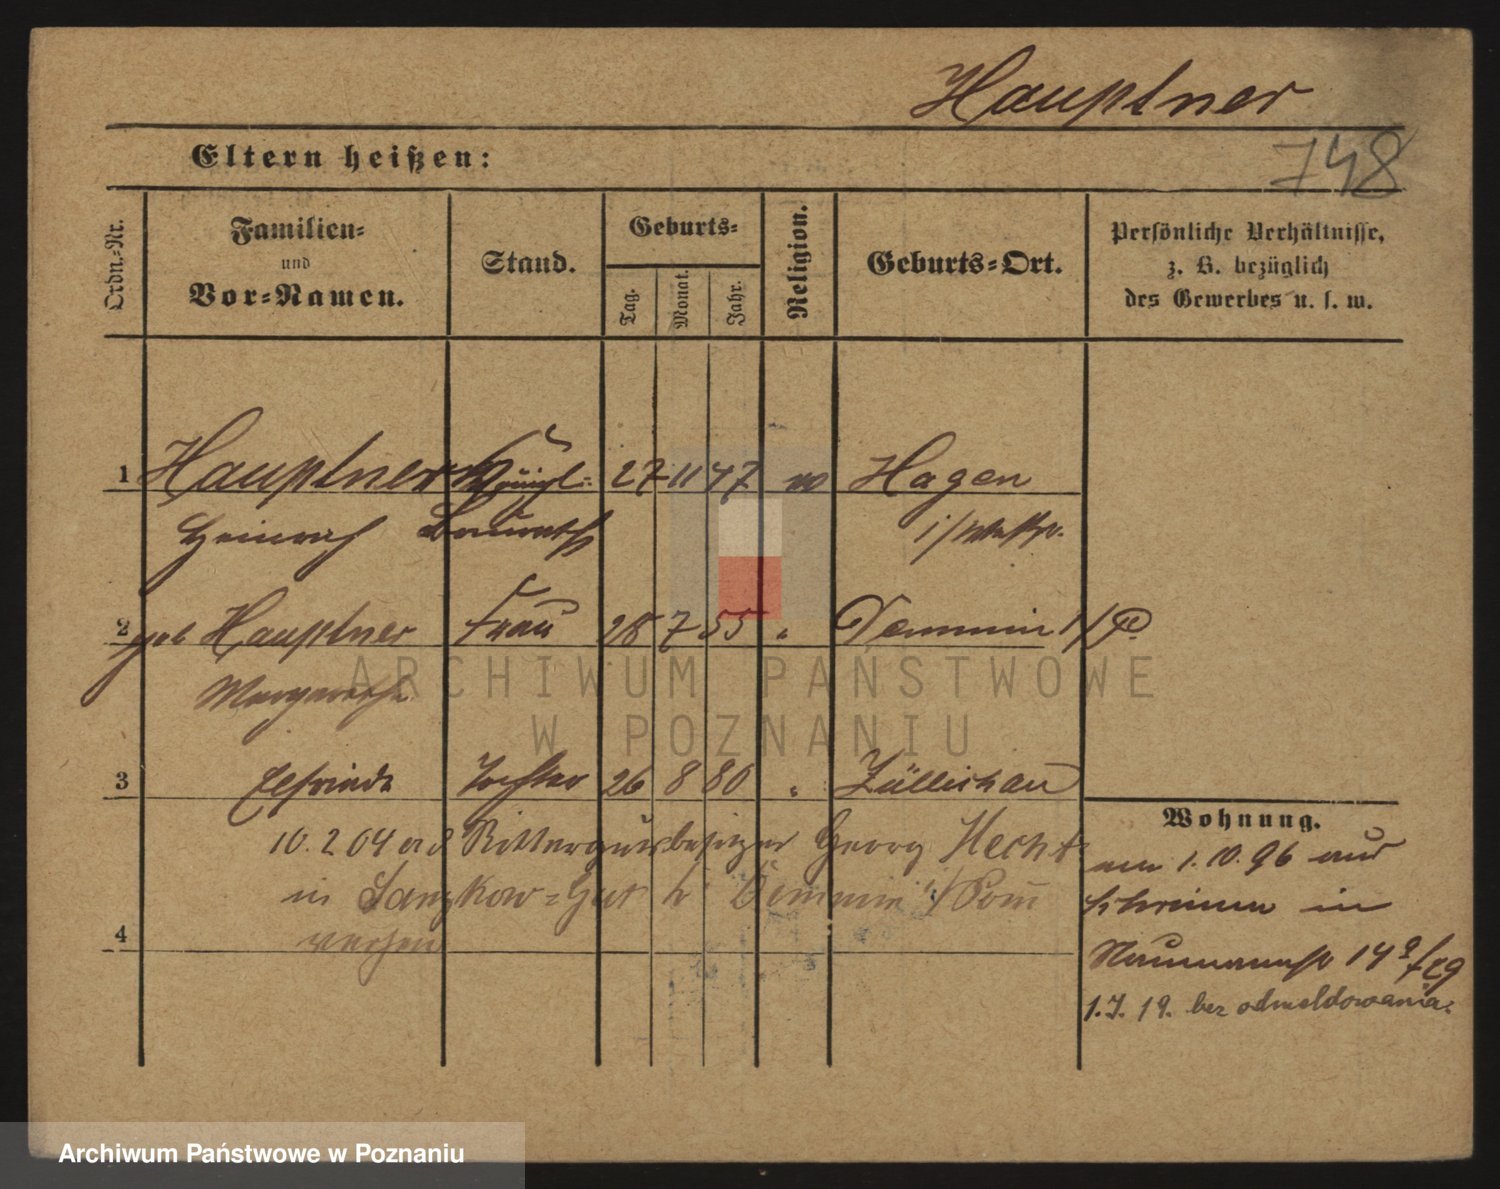 Hauptner
748
Eltern heißen:
Ordn.-Nr.
Familien-
und
Vor-Namen.
Stand.
Geburts-
Tag.
Monat.
Jahr.
Religion.
Geburts-Ort.
Persönliche Verhältnisse,
z. B. bezüglich
des Gewerbes u. s. w.
1 Hauptner Königl: 27 11 47 Hagen
Heinrich Baurath i/Westf.
2 geb Hauptner Frau 28 7 55 " Demmin i/P
Margarethe
3 Elfriede Tochter 26 8 80 " Züllichau
10. 2 04 Rittergutsbesitzer Georg Hecht
in Sanzkow=Gut b Demmin i/Pom
verzogen
4
Wohnung.
am 1. 10. 96 aus
in
Naumannstr 14
1. 7. 19. bez odmeldowania.
ARCHIWUM PAŃSTWOWE
W POZNANIU
Archiwum Państwowe w Poznaniu